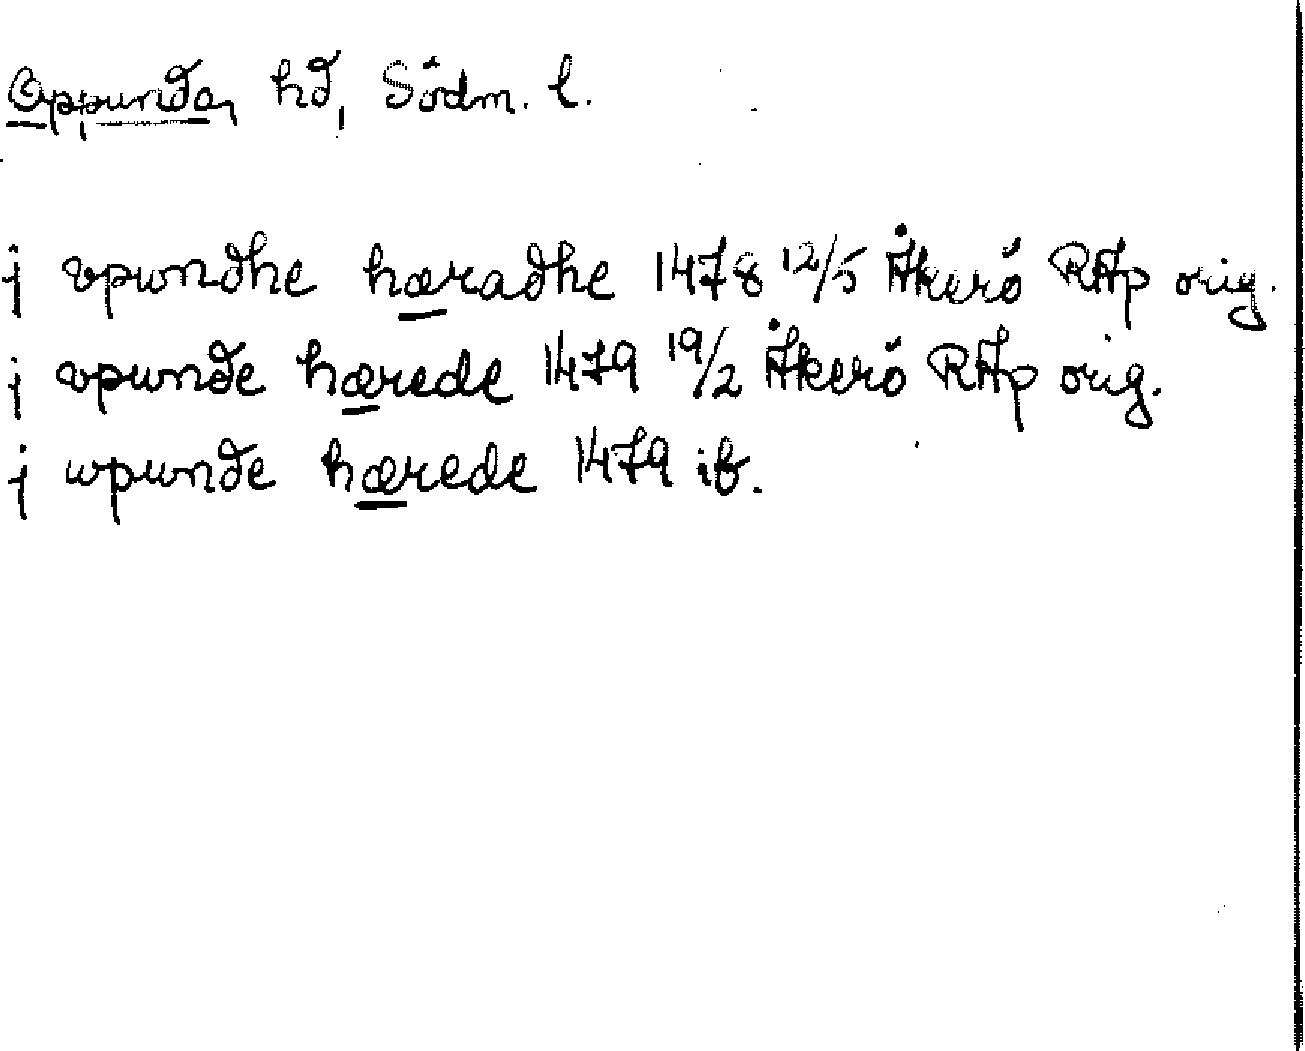 Oppunda, hd, Södm. l.
j vpundhe hæradhe 1478 12/5 Åkerö RAp orig.
j vpunde hærede 1479 19/2 Åkerö RAp orig.
j upunde hærede 1479 ib.